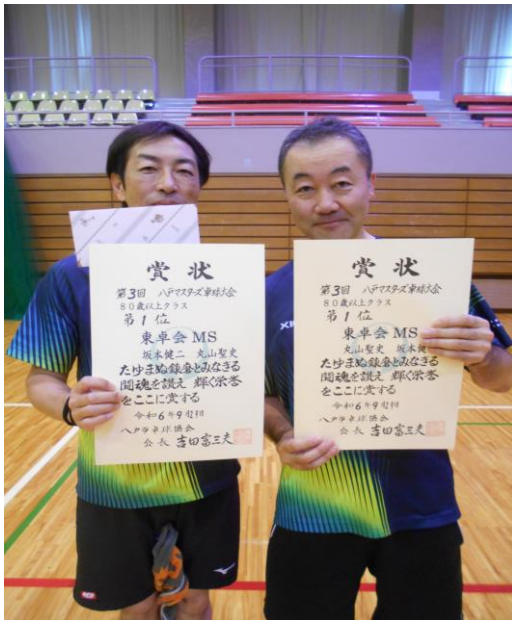 賞状
第3回 八戸マスターズ卓球大会
80歳以上クラス
第1位
東卓会 MS
坂本健二 丸山聖史
たゆまぬ錬磨とみなぎる
闘魂を讃え 輝く栄誉
をここに賞する
令和6年9月
会長 吉田富三夫
賞状
第3回 八戸マスターズ卓球大会
80歳以上クラス
第1位
東卓会 MS
丸山聖史 坂本健
たゆまぬ錬磨とみなぎる
闘魂を讃え 輝く栄誉
をここに賞する
令和6年9月
会長 吉田富三夫